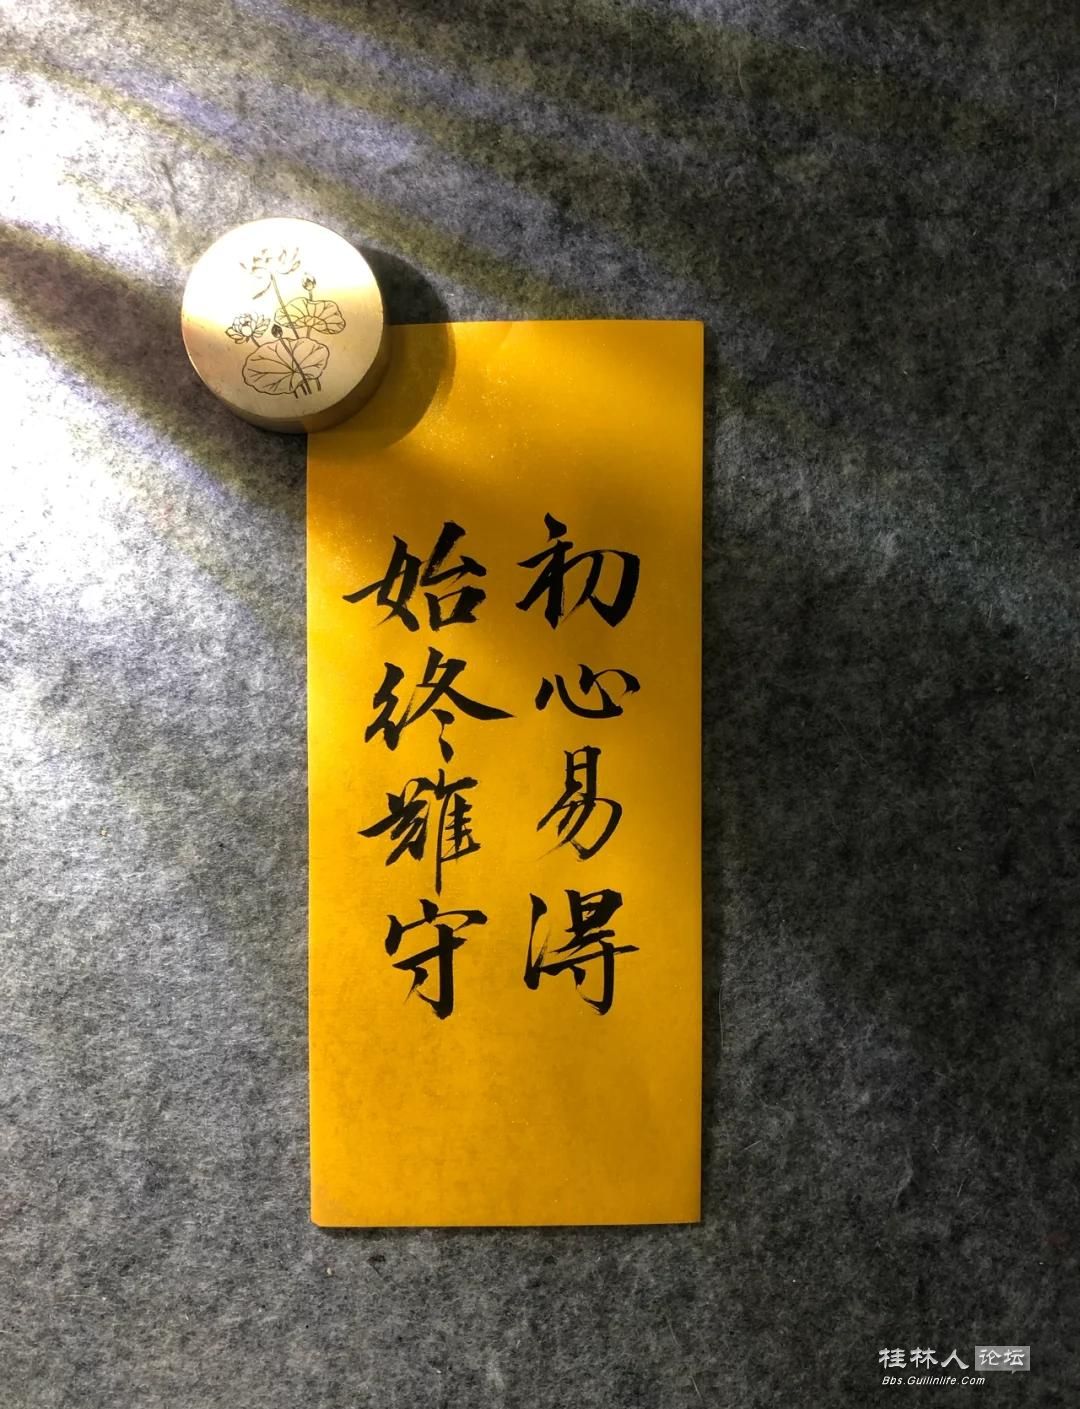 初心易得
始终难守
桂林人论坛
Bbs.Guilinlife.Com